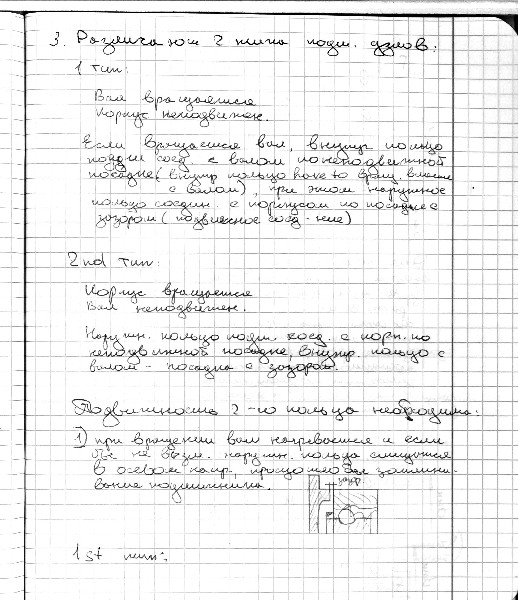 3. Различают 2 типа подш. узлов:
1 тип:
Вал вращается
Корпус неподвижен.
Если вращается вал, внутр кольцо
подш соед. с валом по неподвижной
посадке (внутр кольцо have to вращ. вместе
с валом), при этом наружное
кольцо соедин. с корпусом по посадке с
зазором (подвижное соед-ние)
2nd тип:
Корпус вращается
Вал неподвижен.
Наружн. кольцо подш. соед. с корп. по
неподвижной посадке, внутр. кольцо с
валом - посадка с зазором.
Подвижность 2-го кольца необходима:
1) при вращении вал нагревается и если
бы не возм. наружн. кольца смещаться
в осевом напр., произошло бы заклини-
вание подшипника.
зазор
1st тип: